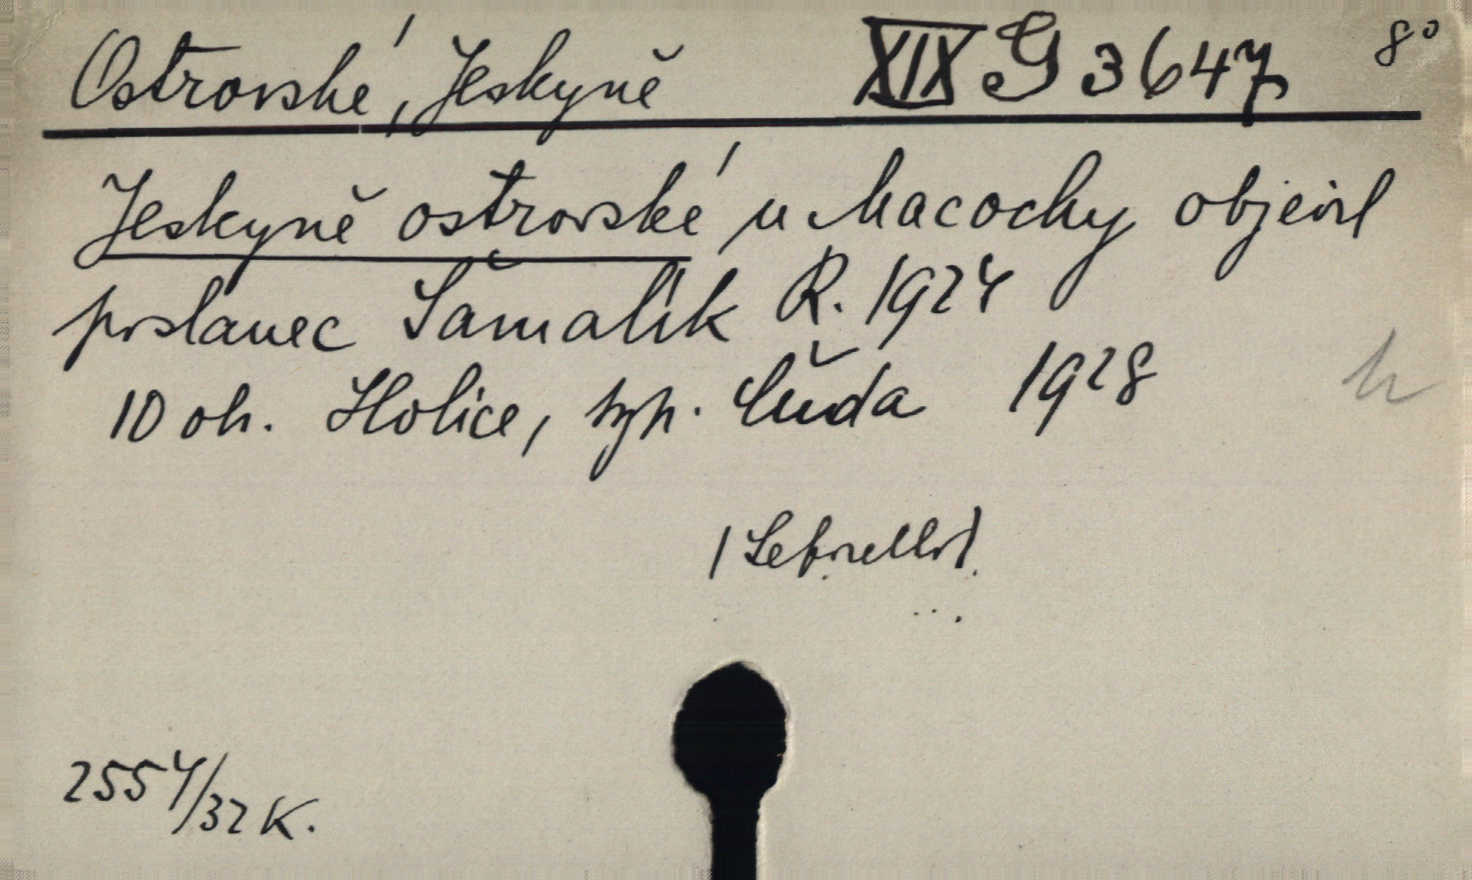 Ostrovské, Jeskyně XIX G 3647 8°
Jeskyně ostrovské u Macochy objevil
poslanec Šamalík R. 1924
10 ob. Holice, typ. Čuda 1928
(Leporello).
2554/32 K.